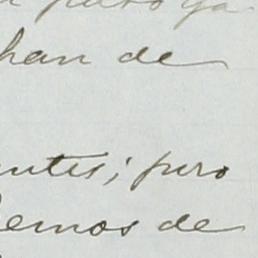 ya
han de
ntes; pero
emos de